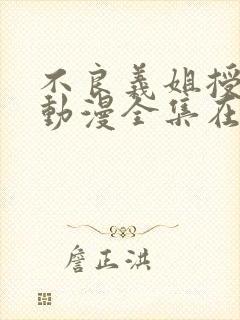 不良義姐授
動漫全集在
詹正洪